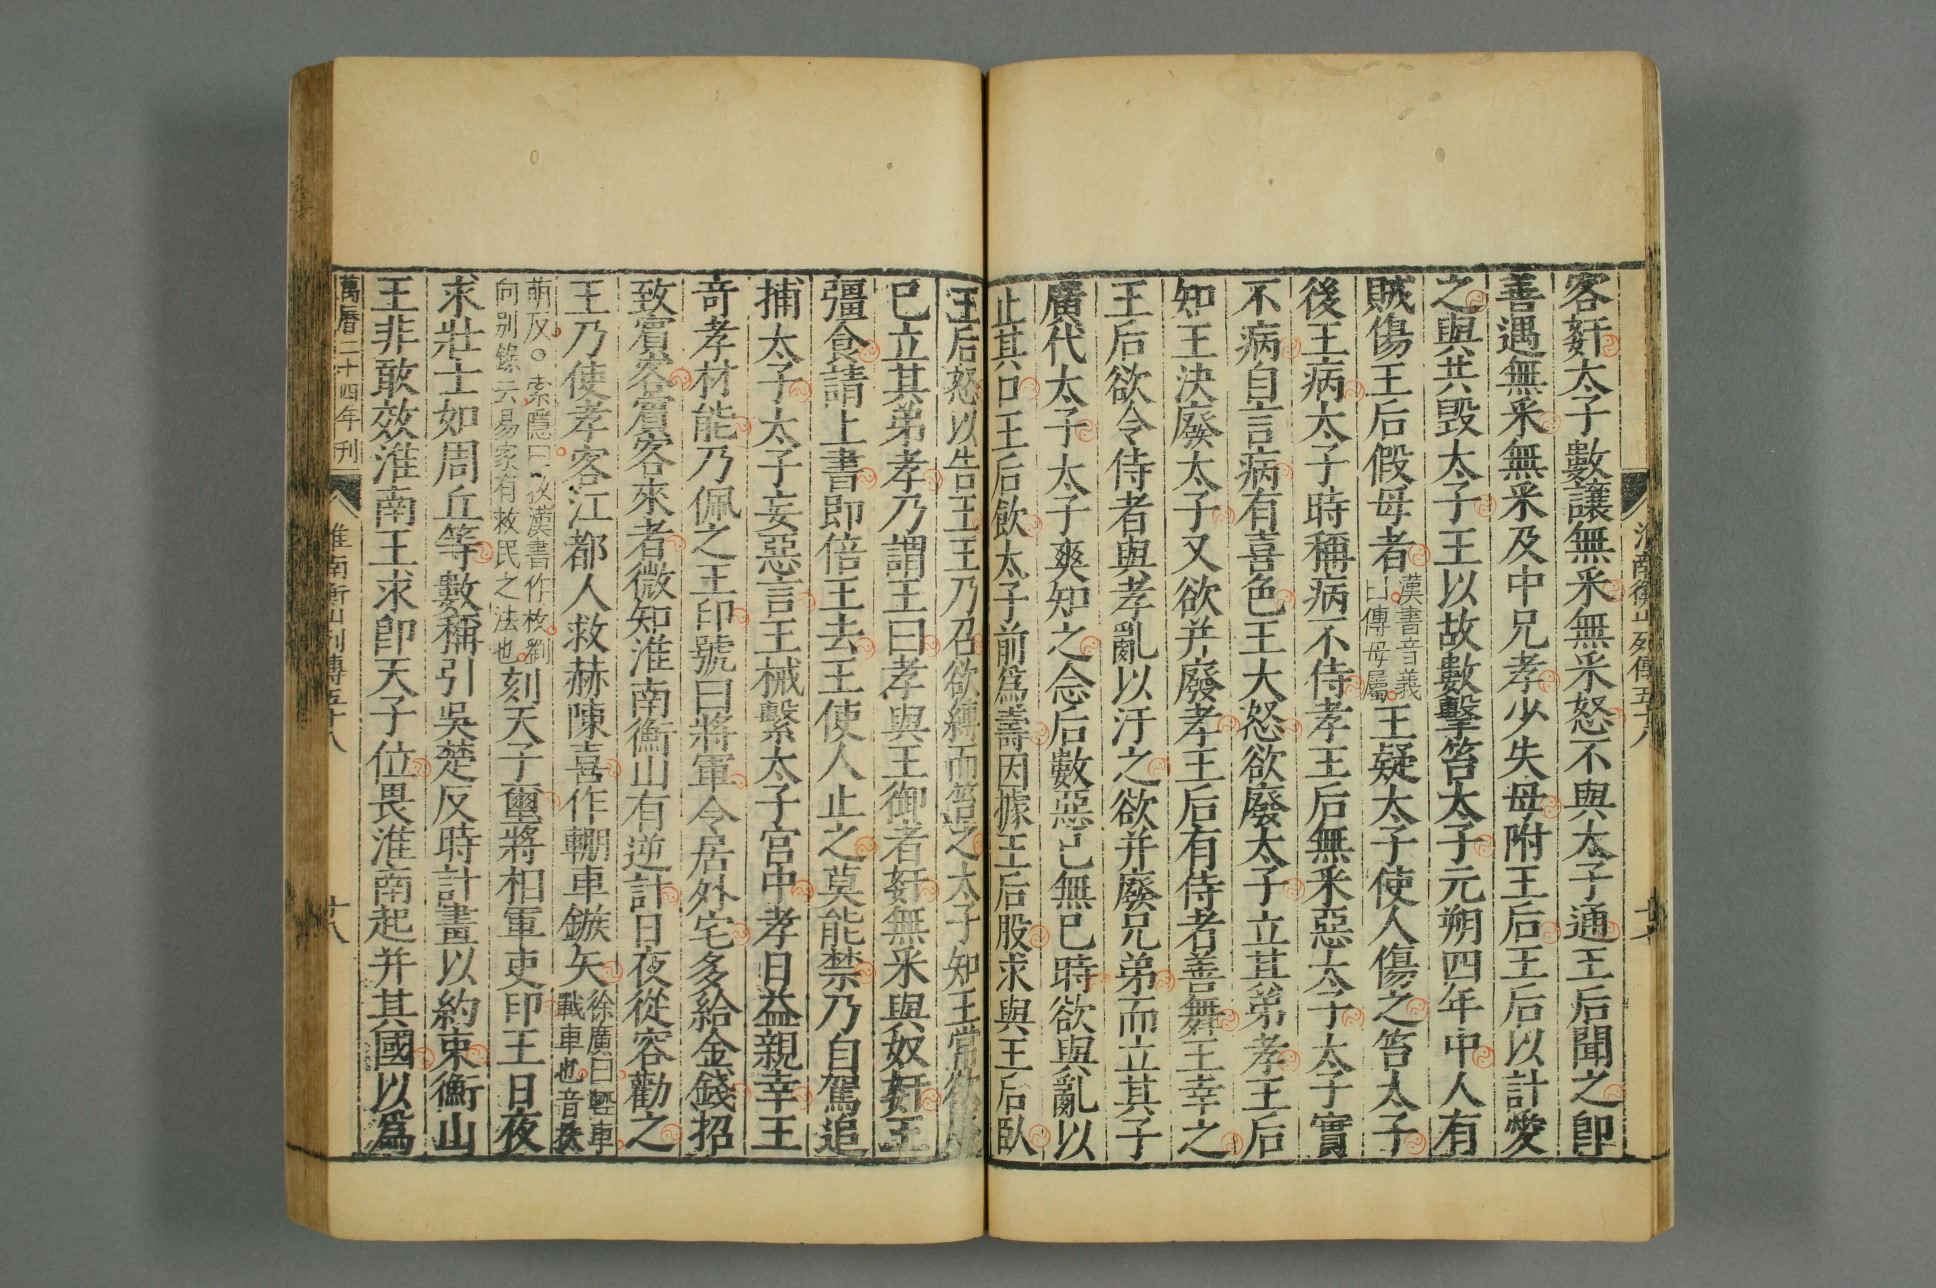 客奸太子數讓無釆無釆怒不與太子通王后聞之卽
善遇無釆無釆及中兄孝少失母附王后王后以計愛
之與共毀太子王以故數擊笞太子元朔四年中人有
賊傷王后假母者漢書音義曰傳母屬王疑太子使人傷之笞太子
後王病太子時稱病不侍孝王后無釆惡太子太子實
不病自言病有喜色王大怒欲廢太子立其弟孝王后
知王決廢太子又欲并廢孝王后有侍者善舞王幸之
王后欲令侍者與孝亂以汙之欲并廢兄弟而立其子
廣代太子太子爽知之念后數惡己無已時欲與亂以
止其口王后飲太子前爲壽因據王后股求與王后臥
王后怒以告王王乃召欲縛而笞之太子知王常欲廢
己立其弟孝乃謂王曰孝與王御者奸無釆與奴奸王
彊食請上書即倍王去王使人止之莫能禁乃自駕追
捕太子太子妄惡言王械繫太子宮中孝日益親幸王
奇孝材能乃佩之王印號曰將軍令居外宅多給金錢招
致賓客賓客來者微知淮南衡山有逆計日夜從容勸之
王乃使孝客江都人救赫陳喜作輣車鏃矢徐廣曰輕車戰車也音扶
萌反。索隱曰救漢書作枚劉向別錄云易家有救民之法也刻天子璽將相軍吏印王日夜
求壯士如周丘等數稱引吳楚反時計畫以約束衡山
王非敢效淮南王求卽天子位畏淮南起并其國以爲
萬曆二十四年刊
淮南衡山列傳五十八
廿八